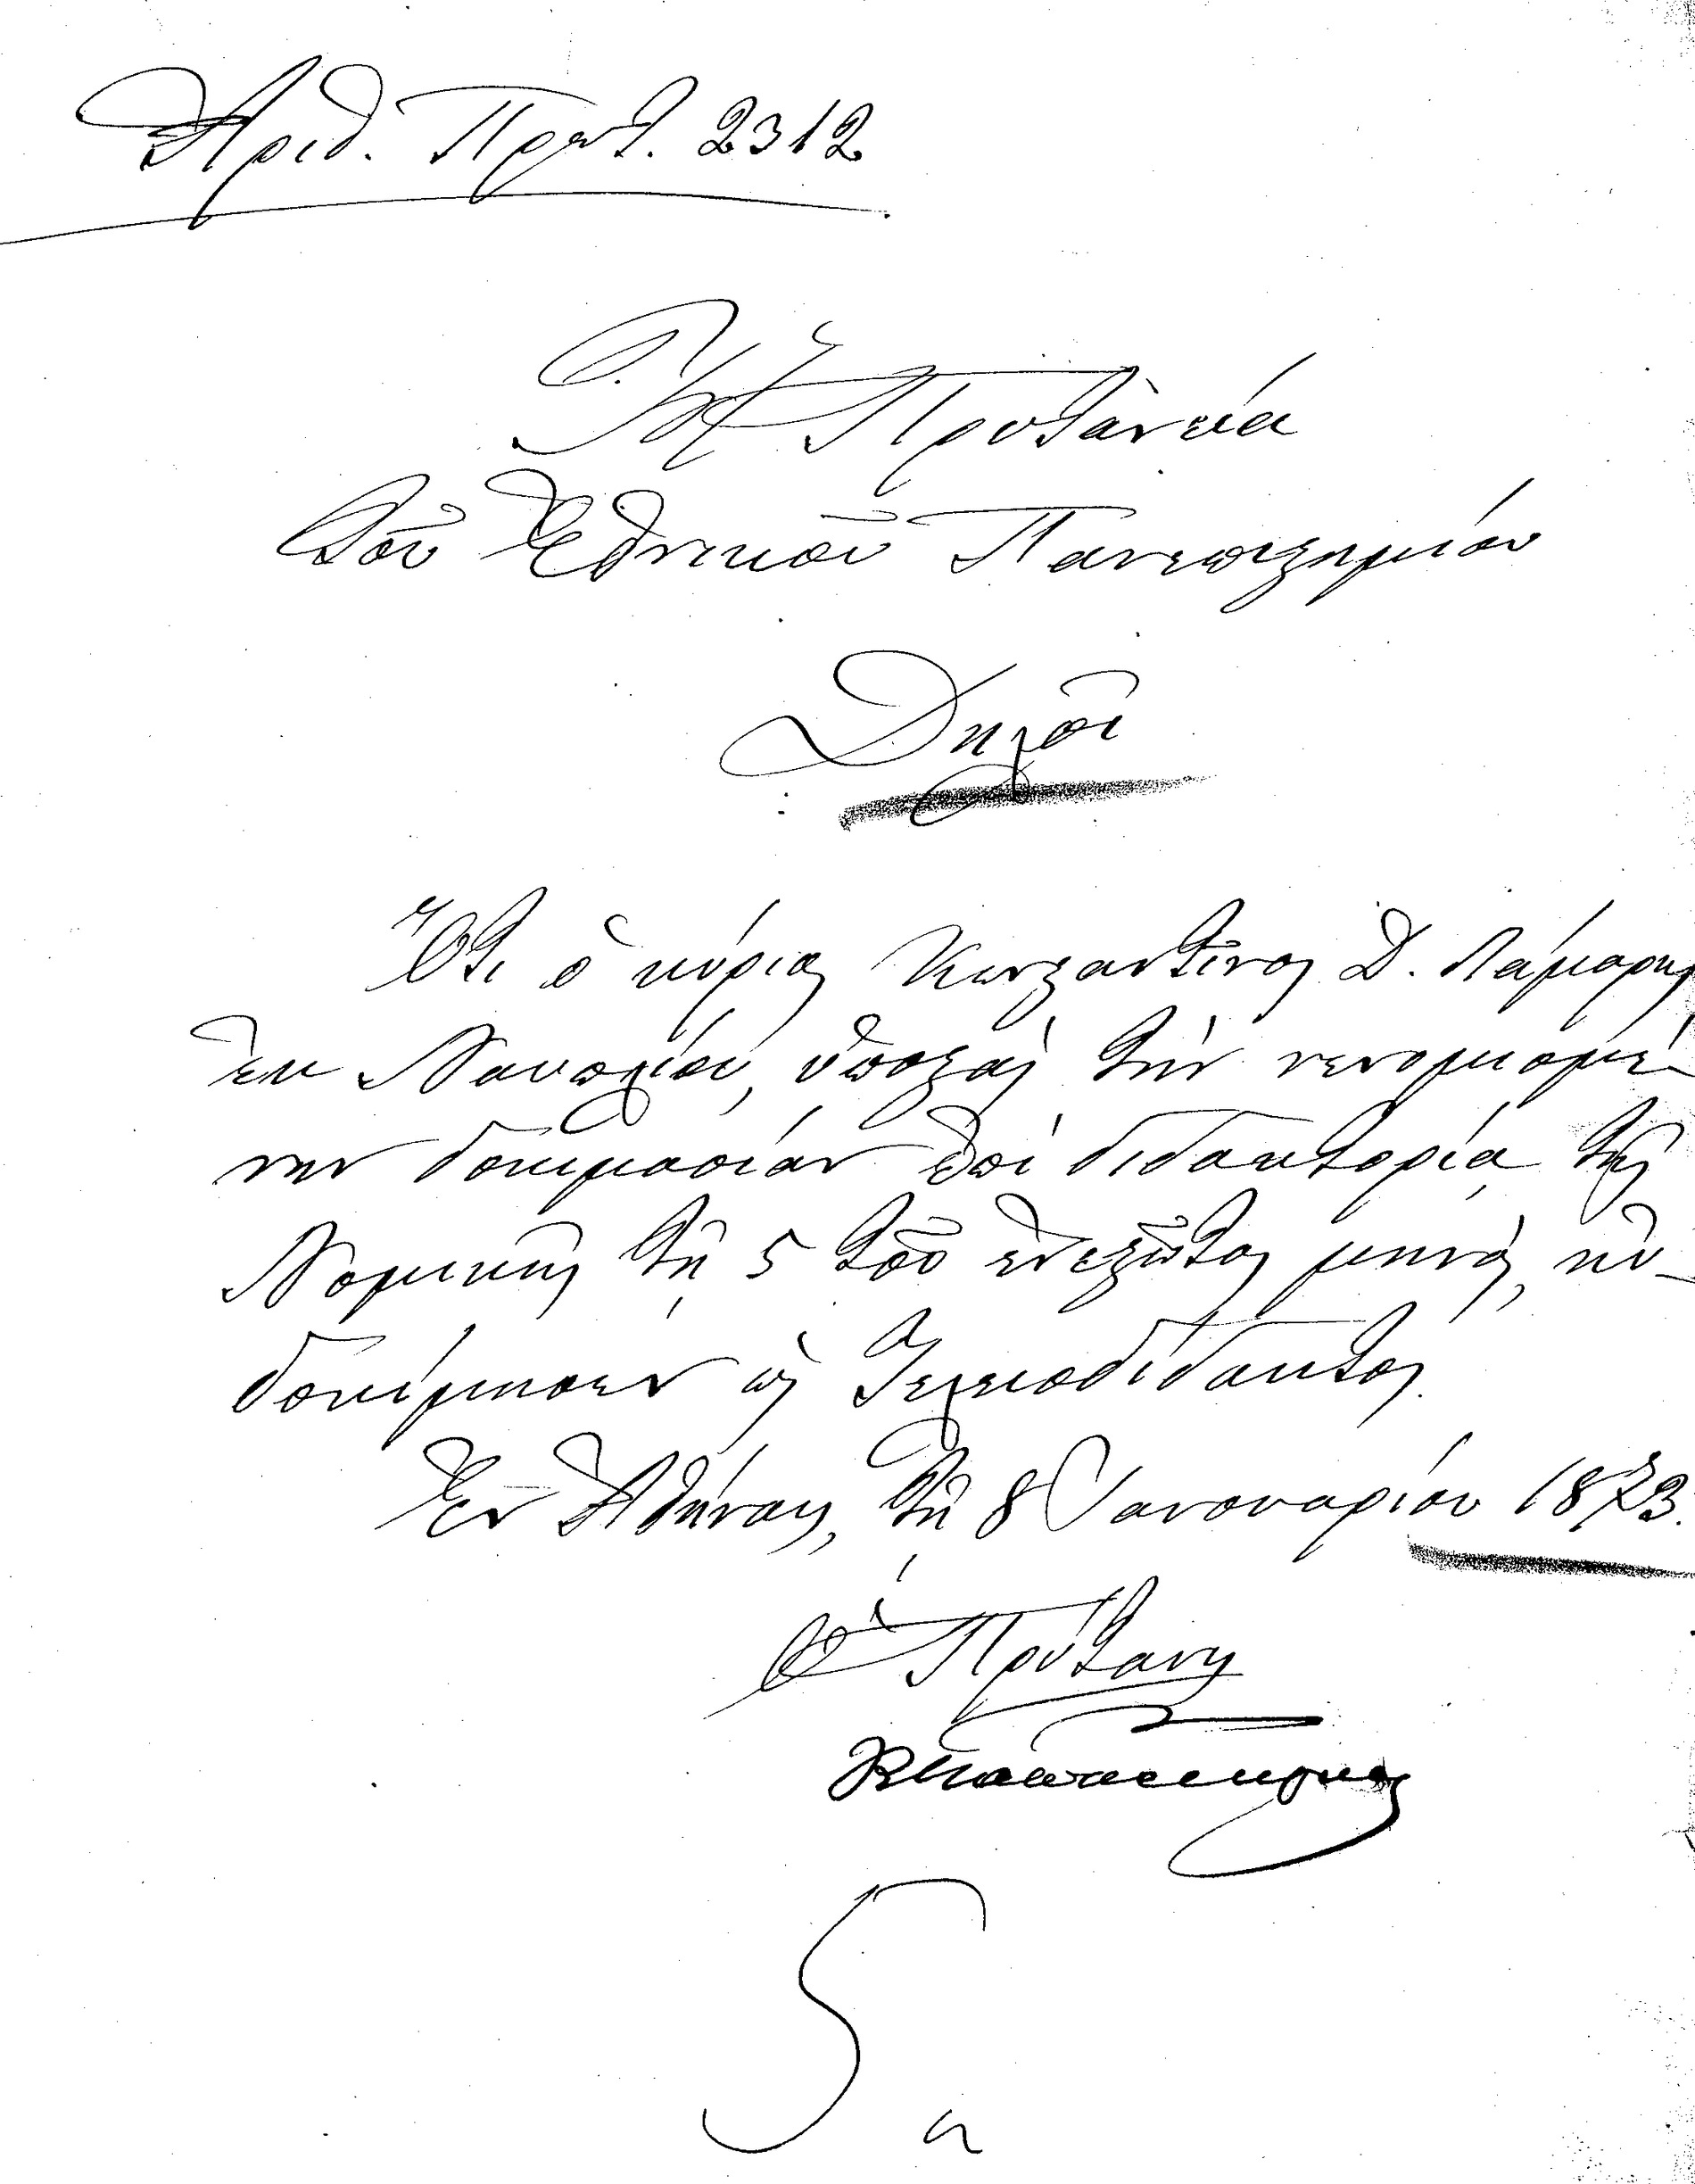 Ἀριθ. Πρωτ. 2312
Ἡ Πρυτανεία
τοῦ Ἐθνικοῦ Πανεπιστημίου
Δηλοῖ
Ὅτι ὁ κύριος Κωνσταντῖνος Δ.
ἐκ Ναυπλίου, ὑποστὰς τὴν νενομισμέ-
νην δοκιμασίαν ἐπὶ διδακτορίᾳ τῆς
Νομικῆς τῇ 5 τοῦ ἐνεστῶτος μηνός, ηὐ-
δοκίμησεν ὡς Τελειοδίδακτος.
Ἐν Ἀθήναις, τῇ 8 Ἰανουαρίου 1873.
Ὁ Πρύτανις